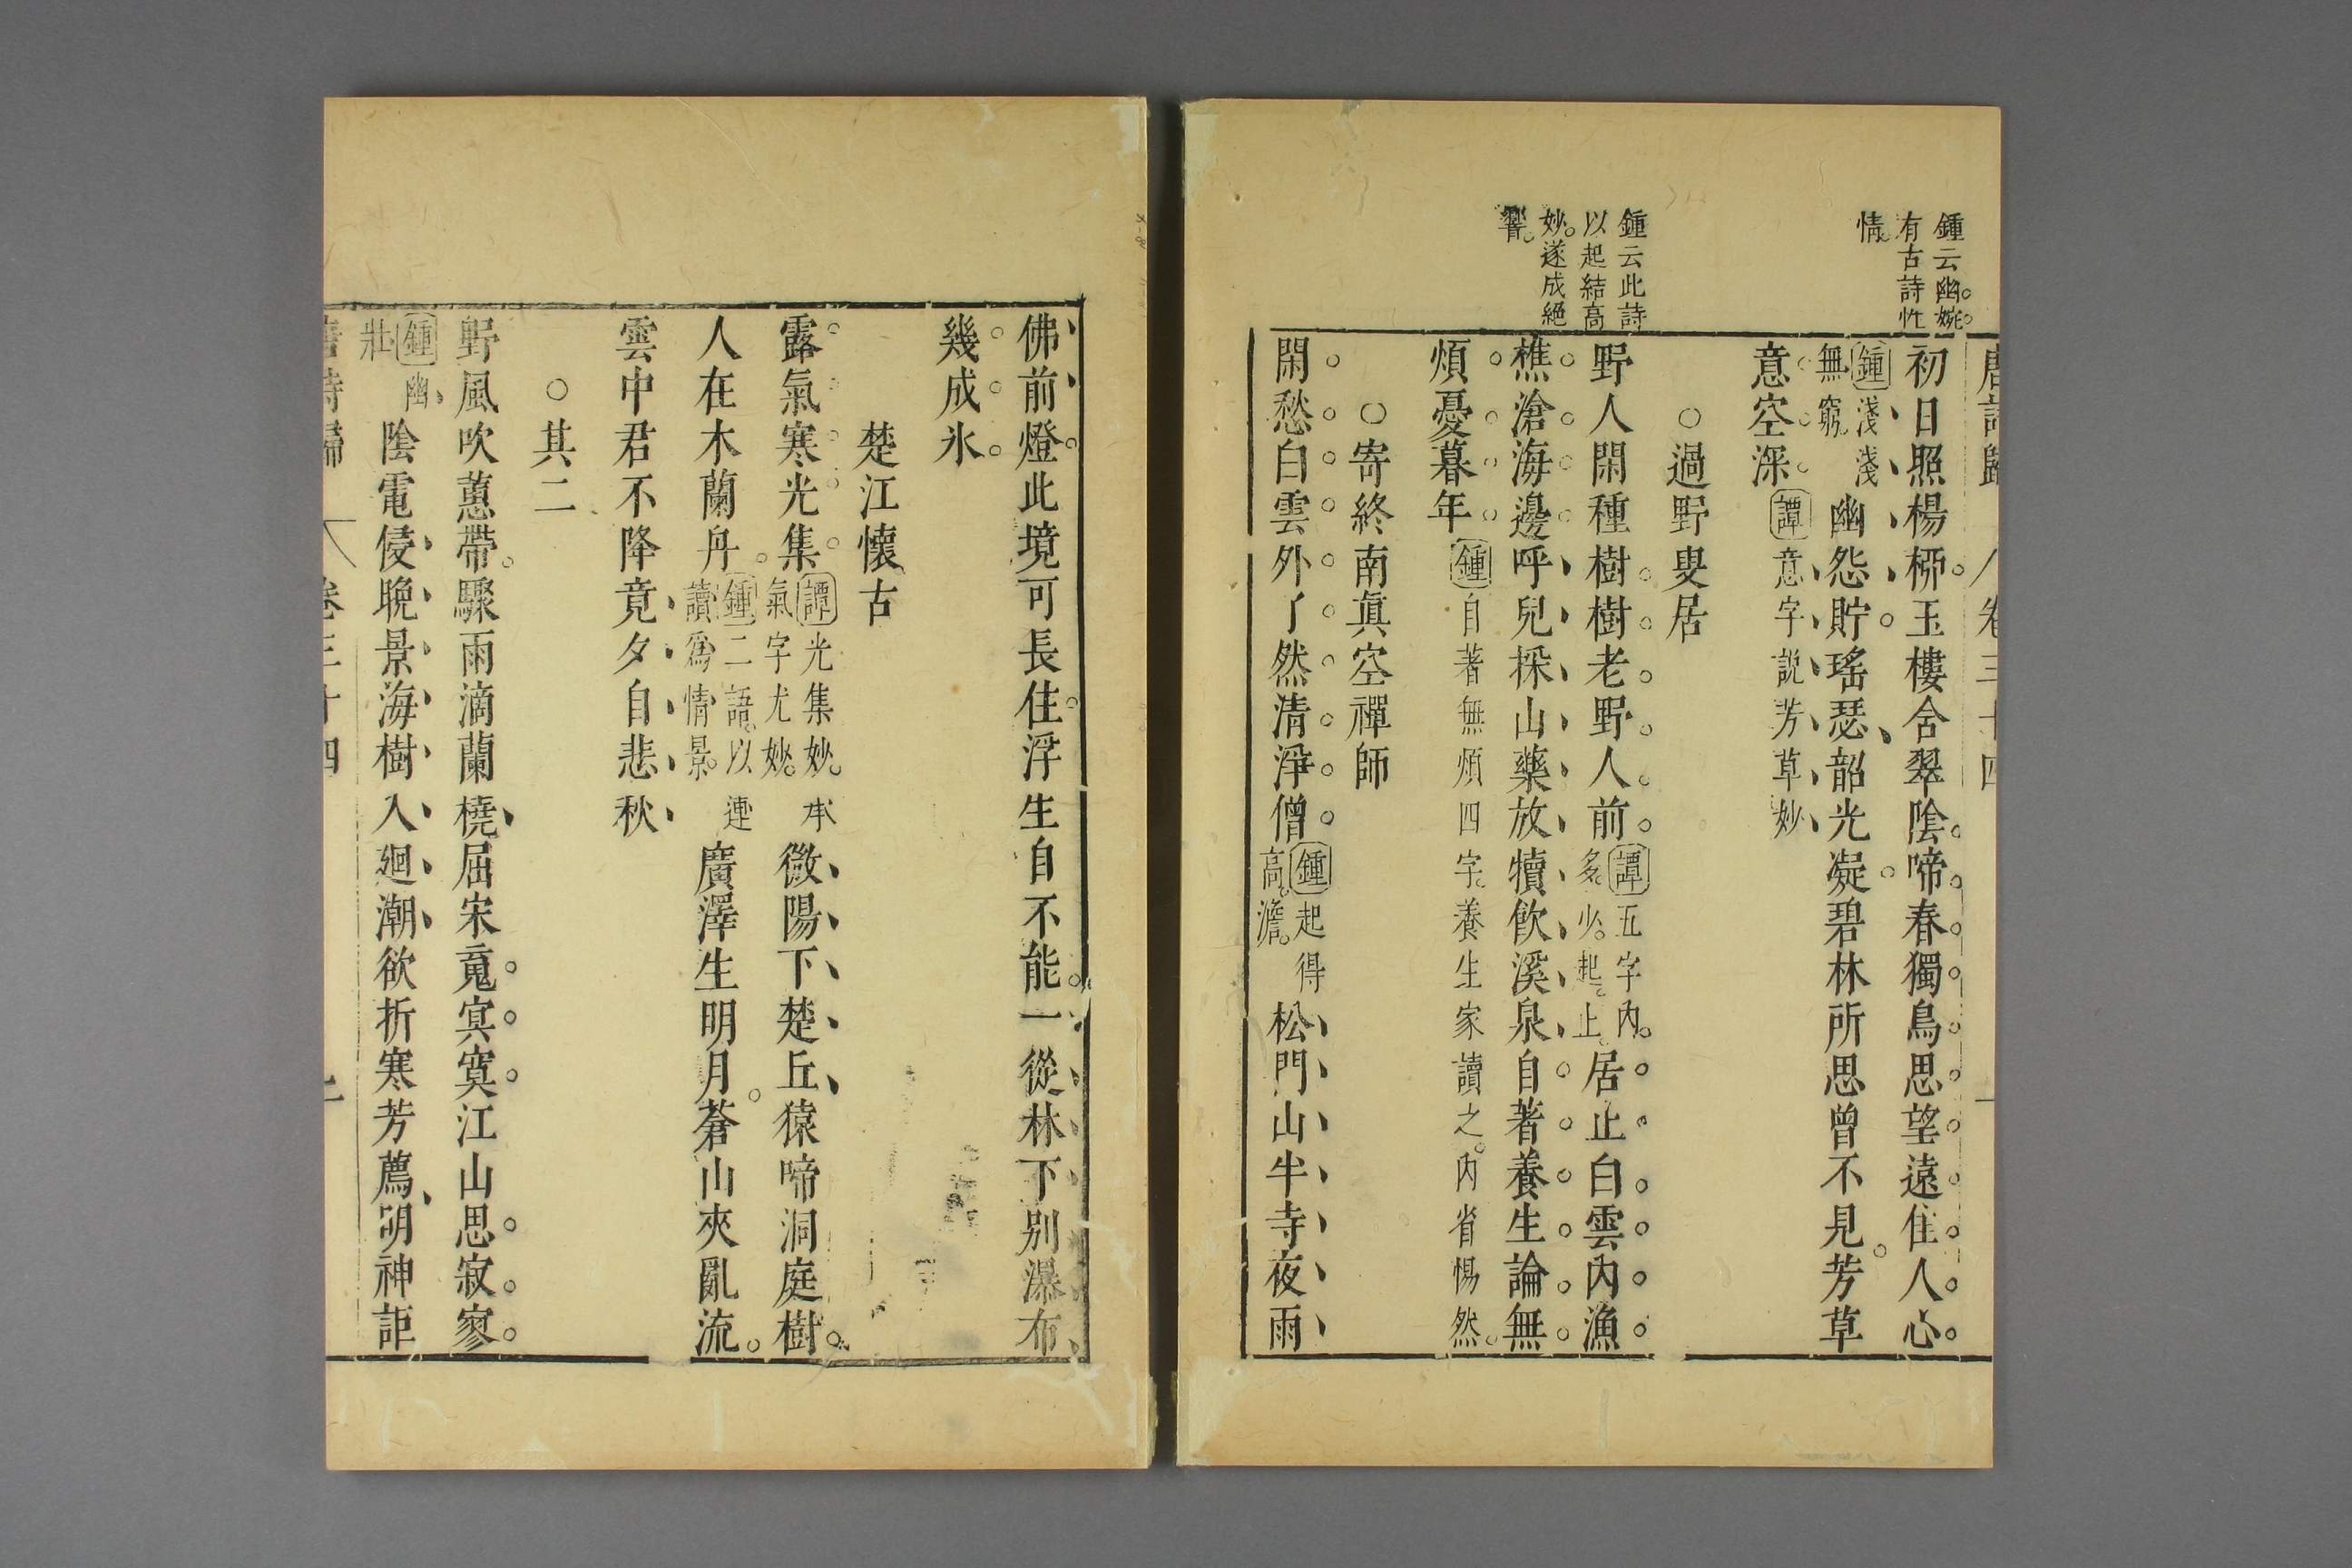 唐詩歸 卷三十四
鍾云幽婉
有古詩性
情
初日照楊柳玉樓含翠陰啼春獨鳥思望遠佳人心
鍾淺淺
無窮
幽怨貯瑤瑟韶光凝碧林所思曾不見芳草
意空深譚意字説芳草妙
○過野叟居
鍾云此詩
以起結高
妙遂成絕
響
野人閑種樹樹老野人前譚五字内
多少起止
居止白雲内漁
樵滄海邊呼兒採山藥放犢飲溪泉自著養生論無
煩憂暮年鍾自著無煩四字養生家讀之内省惕然
○寄終南眞空禪師
閑愁白雲外了然清淨僧鍾起得
高澹
松門山半寺夜雨
佛前燈此境可長住浮生自不能一從林下别瀑布
幾成氷
楚江懷古
露氣寒光集譚光集妙本
氣字尤妙
微陽下楚丘猿啼洞庭樹
人在木蘭舟鍾二語以連
讀爲情景
廣澤生明月蒼山夾亂流
雲中君不降竟夕自悲秋
○其二
野風吹蕙帶驟雨滴蘭橈屈宋䰟㝠寞江山思寂寥
鍾幽
壯
陰電侵晚景海樹入廻潮欲折寒芳薦明神詎
唐詩歸 卷三十四